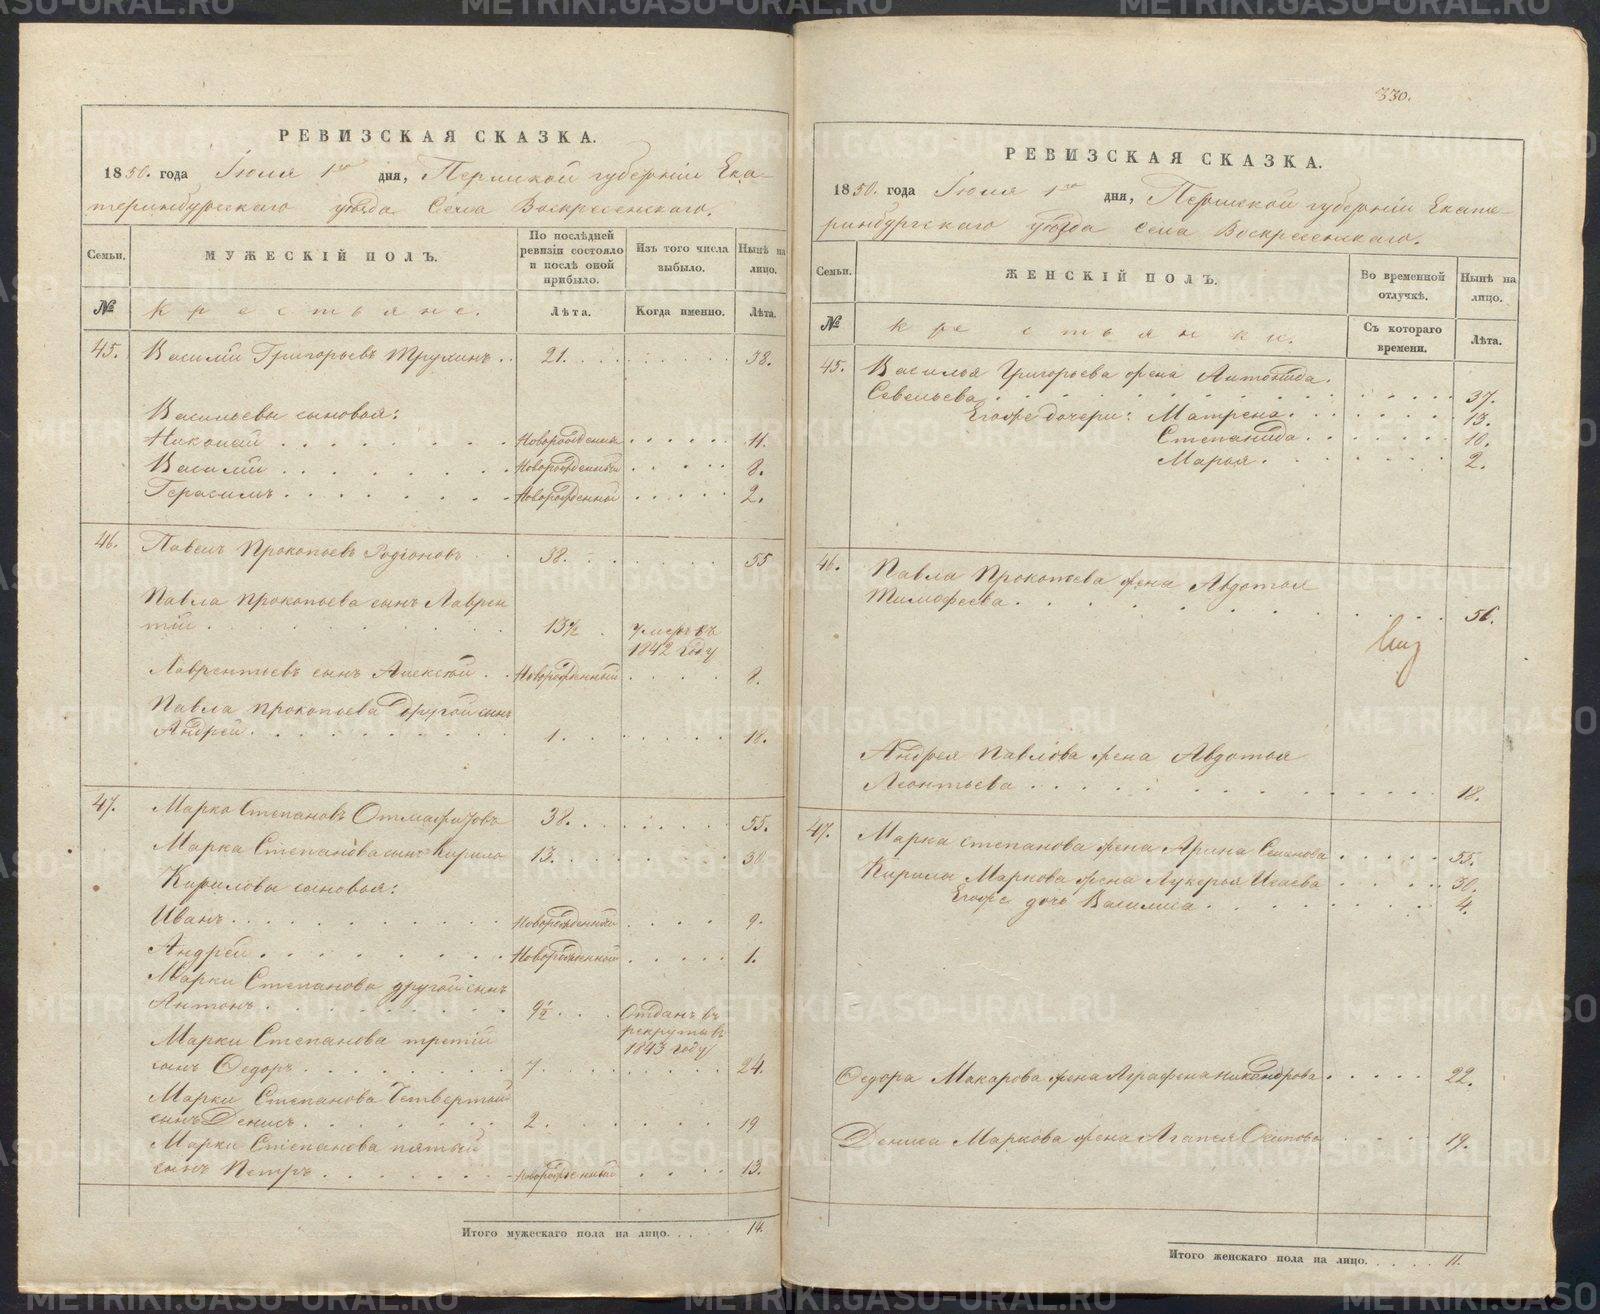 РЕВИЗСКАЯ СКАЗКА.
1850. года Іюля 1го дня, Пермской губерніи Ека-
теринбургскаго уѣзда Села Воскресенскаго.
Семьи.
МУЖЕСКІЙ ПОЛЪ.
По послѣдней ревизіи состояло и послѣ оной прибыло.
Изъ того числа выбыло.
Нынѣ на лицо.
№
Крестьяне.
Лѣта.
Когда именно.
Лѣта.
45. Василій Григорьевъ Трухинъ . . 21. . . . . . . . 38.
Васильевы сыновья:
Николай . . . . . . . Новорожденный . . . . . 11.
Василій . . . . . . . Новорожденный . . . . . 8.
Герасимъ . . . . . . . Новорожденной . . . . . 2.
46. Павелъ Прокопьевъ Родіоновъ . . 38. . . . . . . . 55
Павла Прокопьева сынъ Лаврен
тій . . . . . . . . 13½ . Умеръ въ
1842 году
Лаврентьевъ сынъ Алексѣй . . Новорожденный . . . . 8.
Павла Прокопьева Другой сынъ
Андрей . . . . . . . . . 1. . . . . . . . 18.
47. Марко Степановъ 38. . . . . . . . 55.
Марка Степанова сынъ Кирило 13. . . . . . . . 30.
Кириловы сыновья:
Иванъ . . . . . . . . Новорожденный . . . . 9.
Андрей . . . . . . . . Новорожденной . . . . . 1.
Марки Степанова другой сынъ
Антонъ . . . . . . . . . 9½ . . . Отданъ въ
рекруты въ
1843 году
Марки Степанова третій
сынъ Ѳедоръ . . . . . . . 7. . . . . . . . 24.
Марки Степанова Четвертой
сынъ Денисъ . . . . . . . 2. . . . . . . 19
Марки Степанова пятый
сынъ Петръ . . . . . . . Новорожденный . . . . 13.
Итого мужескаго пола на лицо. . . . . 14.
330.
РЕВИЗСКАЯ СКАЗКА.
1850. года Іюля 1го дня, Пермской губерніи Екате-
ринбургскаго уѣзда села Воскресенскаго.
Семьи.
ЖЕНСКІЙ ПОЛЪ.
Во временной отлучкѣ.
Нынѣ на лицо.
№
Крестьянки.
Съ котораго времени.
Лѣта.
45. Василья Григорьева жена Антонида
Савельева . . . . . . . . . . . . . 37.
Егоже дочери: Матрена . . . . . . . 13.
Степанида . . . . . . . 10.
Марья . . . . . . . 2.
46. Павла Прокопьева жена Авдотья
Тимофеева . . . . . . . . . . . 56.
Андрея Павлова жена Авдотья
Леонтьева . . . . . . . . . . . 18.
47. Марка Степанова жена Арина Семенова . . . . . 55.
Кирилы Маркова жена Лукерья Исаева . . . . . 30.
Егоже дочь Василиса . . . . . . . . 4.
Ѳедора Макарова жена Аграфена Никандрова . . . . . 22.
Дениса Маркова жена Агапея Осипова . . . . 19.
Итого женскаго пола на лицо. . . . . 11.
METRIKI.GASO-URAL.RU